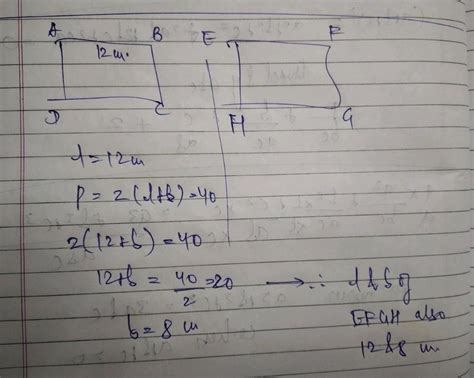 A B E F
12 m.
D C H G
l = 12 m
P = 2(l+b) = 40
2(12+b) = 40
12+b = 40/2 = 20 → ∴ l & b of
EFGH also
b = 8 m
12 & 8 m.